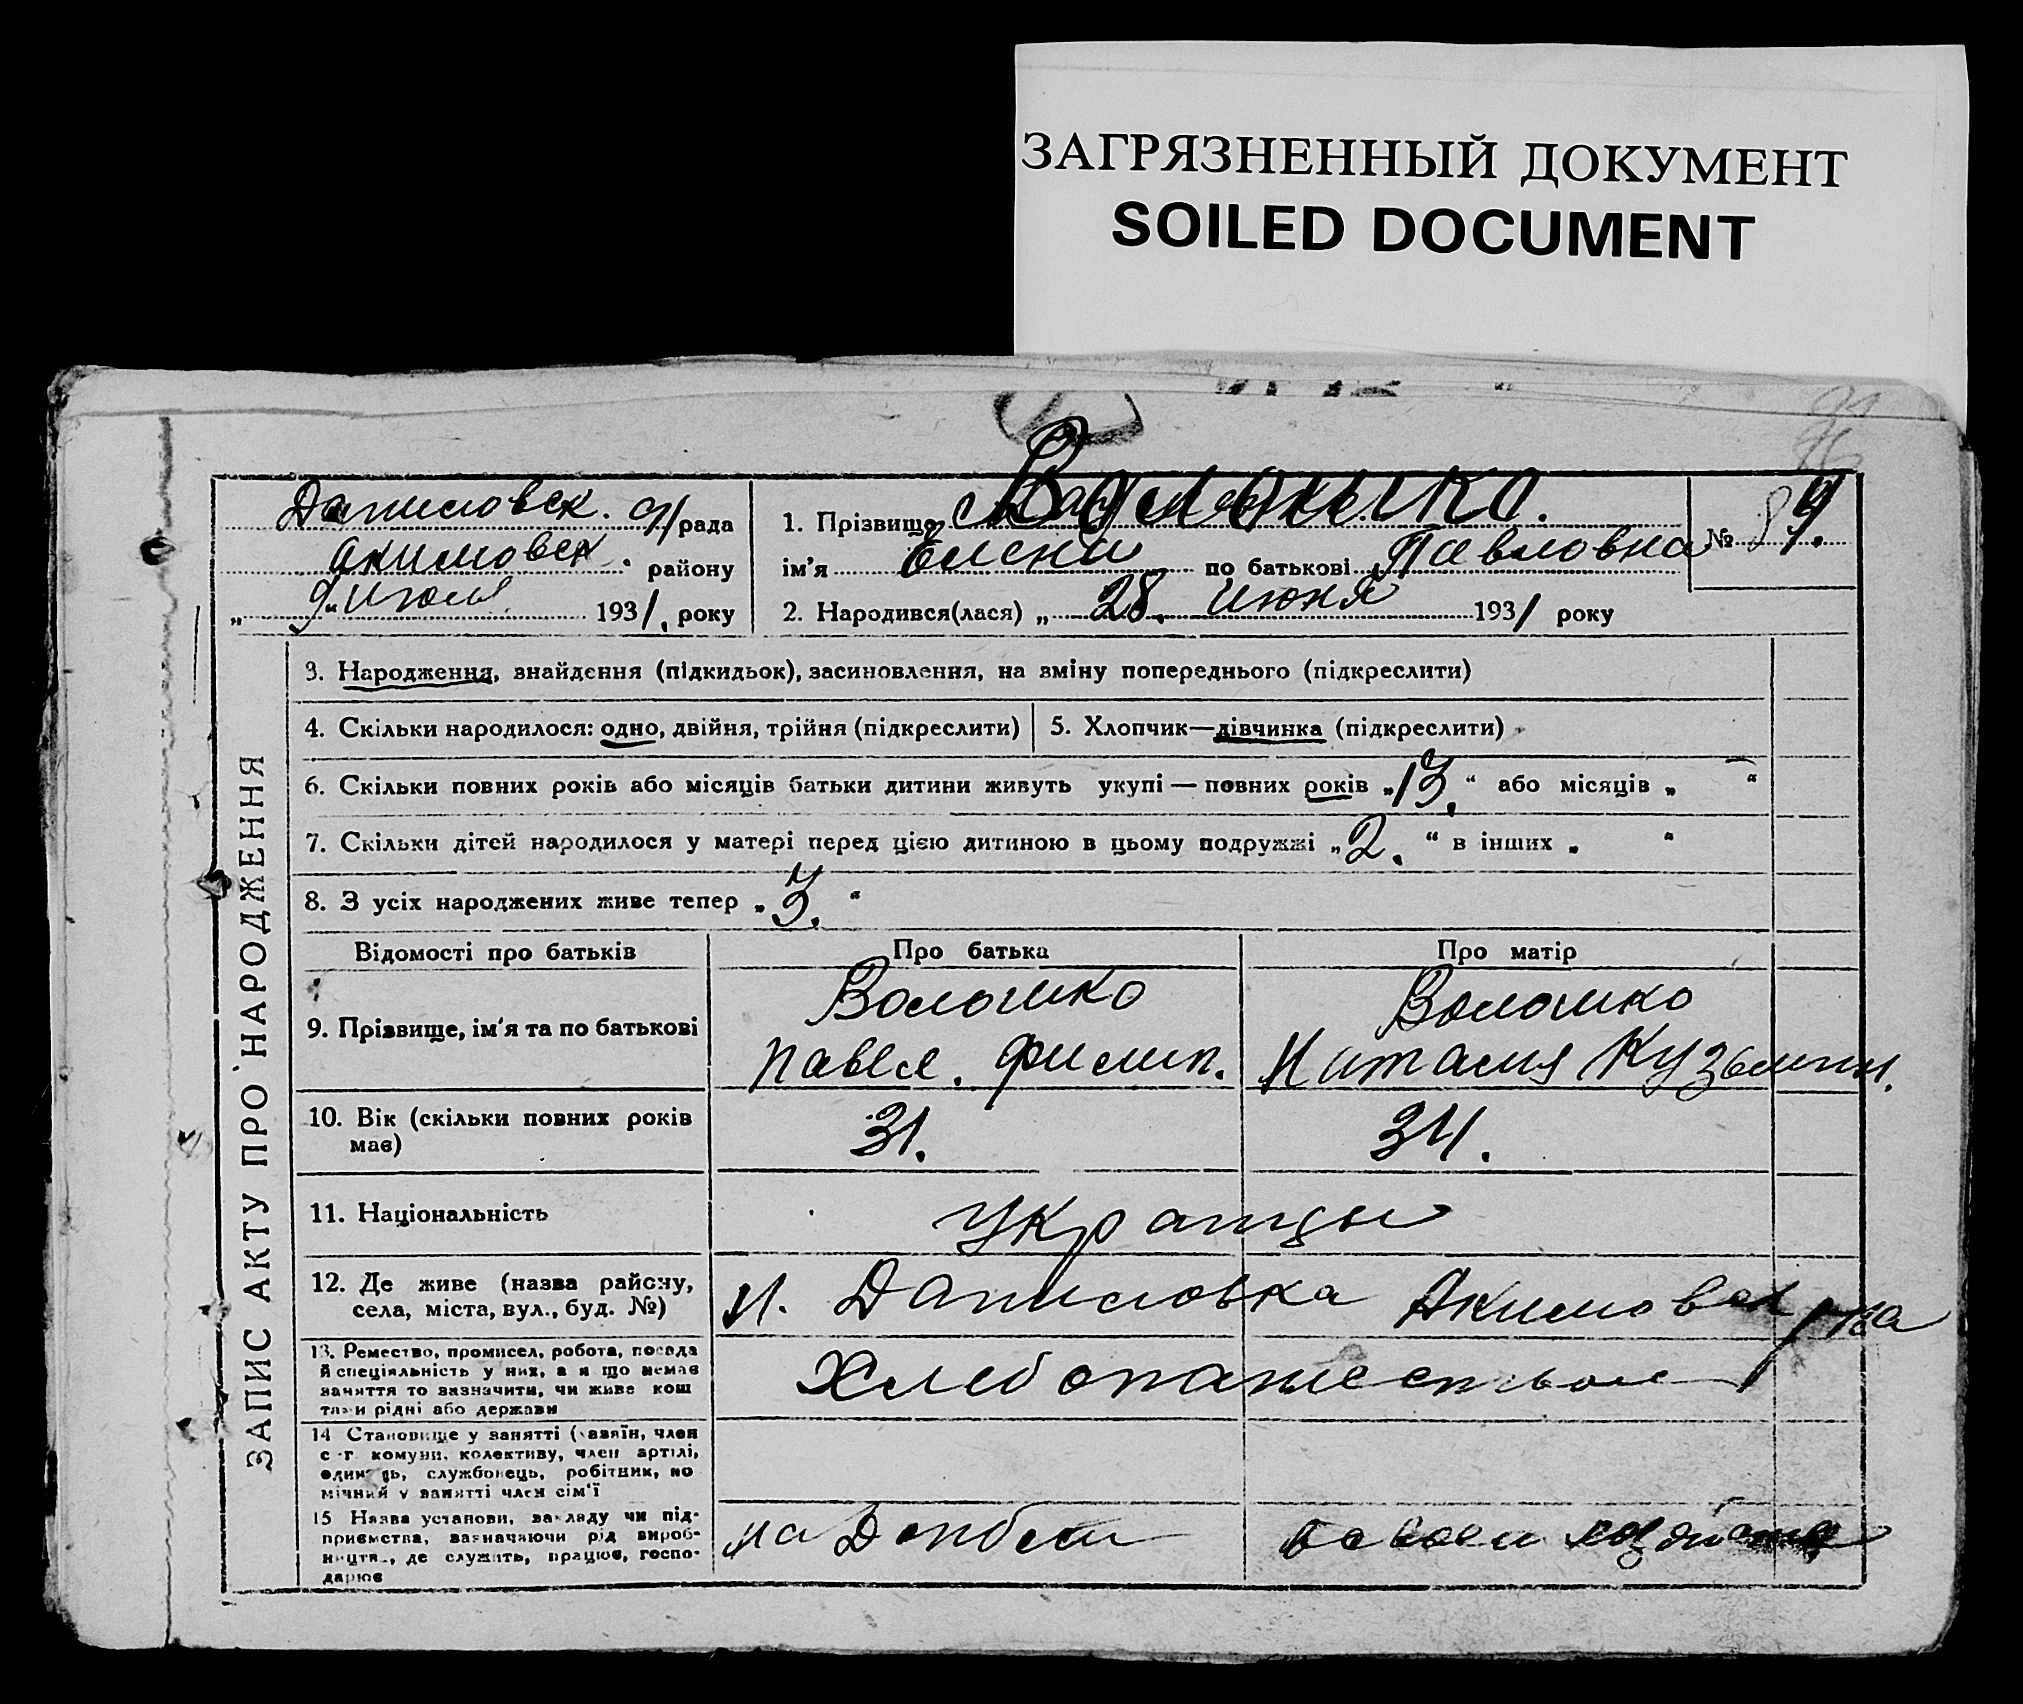 ЗАГРЯЗНЕННЫЙ ДОКУМЕНТ
SOILED DOCUMENT
Даниловск. с/рада
Акимовск. району
„9“ июля 1931. року
1. Прізвище Волошко.
№ 89.
ім’я Елена по батькові Павловна
2. Народився(лася) „28. июня 1931 року
ЗАПИС АКТУ ПРО НАРОДЖЕННЯ
3. Народження, знайдення (підкидьок), засиновлення, на зміну попереднього (підкреслити)
4. Скільки народилося: одно, двійня, трійня (підкреслити) 5. Хлопчик—дівчинка (підкреслити)
6. Скільки повних років або місяців батьки дитини живуть укупі — повних років „13.“ або місяців „ — “
7. Скільки дітей народилося у матері перед цією дитиною в цьому подружжі „2.“ в інших „ “
8. З усіх народжених живе тепер „3.“
Відомості про батьків Про батька Про матір
9. Прізвище, ім’я та по батькові
Волошко Волошко
Павел. Филип. Наталия Кузьмин.
10. Вік (скільки повних років має) 31. 34.
11. Національність Укратцы
12. Де живе (назва району,
села, міста, вул., буд. №) Н. Даниловка Акимовск р-на
13. Ремество, промисел, робота, посада
й спеціяльність у них, а я що немає
заняття то зазначити, чи живе кош
тами рідні або держави
Хлебопашеством
14 Становище у занятті (хазяїн, член
с-г. комуни, колективу, член артілі,
одинець, службовець, робітник, по
мічний у занятті член сім’ї
15 Назва установи, закладу чи під-
приємства, зазначаючи рід вироб-
ництв., де служить, працює, госпо-
дарює
на Донбасе в своем хозяйстве